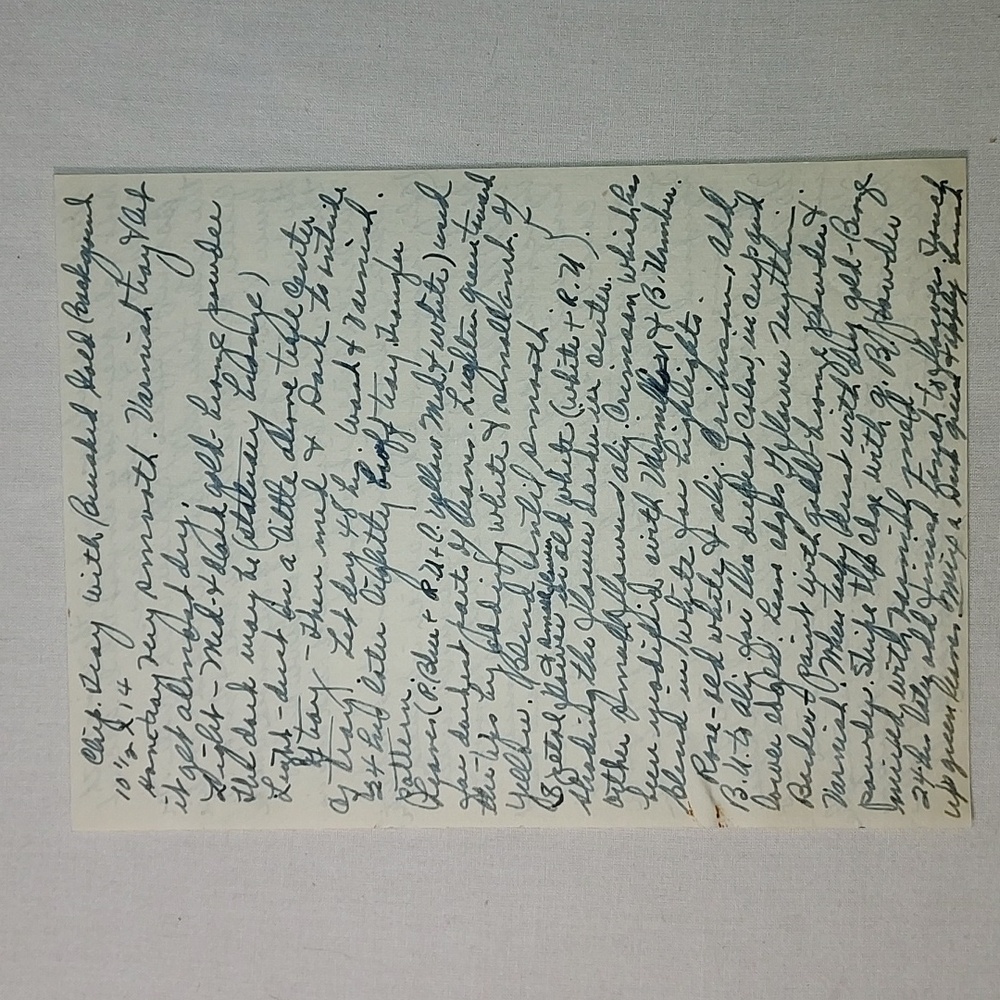 Chip. Tray with Brushed Gold Background
10 1/2 X 14
Sand tray very smooth. Varnish tray & let
it get almost dry.
Light - Med. & dark gold - bronze powder
the dark may be (Statuary bronze)
Light - dust on a little above tray center
of tray - Then med & Dark to outside
of tray. Let dry 48 hrs. Wash & varnish.
24 hrs later lightly buff tray through
Pattern.
Leaves (P. Blue + R.U. + C. Yellow Med + white) used
for darkest parts of leaves. Lighten green toward
the tips by adding white & small amt. of
yellow. Blend until smooth
(3 petal flower & small flower in old white (White + R.U.)
shading the flowers darker in center.
other small flowers aliz. Crimson which has
been modified with & B. Umber.
blend in white for highlights.
Rose - old white & aliz. Crimson, add
B.U. to aliz. for the deepest color, in cup and
lower edges. Leave edges of flowers rhythm.
Border - paint with gold bronze powder &
Varnish. (When tacky dust with Pale gold - Bronze
powder. Stripe top edge with g. B. powder
mixed with varnish) small
24 hrs later add finishing touches to flowers. Touch
up green leaves. Mix a dark green & apply